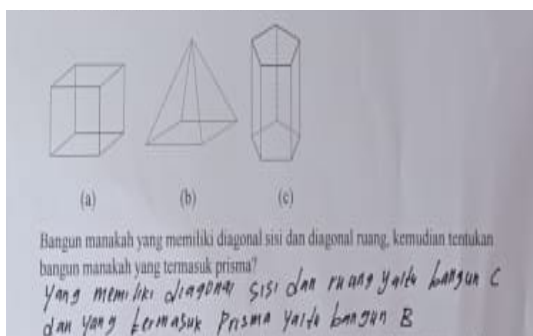 (a) (b) (c)
Bangun manakah yang memiliki diagonal sisi dan diagonal ruang, kemudian tentukan
bangun manakah yang termasuk prisma?
yang memiliki diagonal sisi dan ruang yaitu bangun C
dan yang termasuk Prisma yaitu bangun B